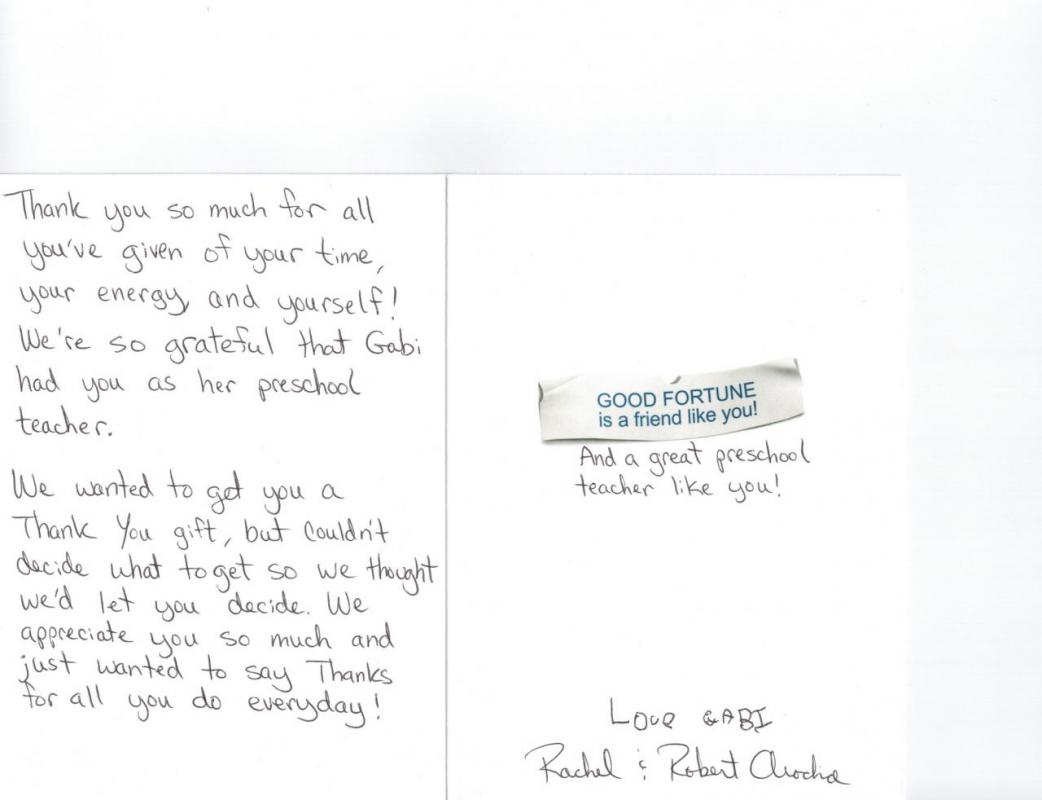 Thank you so much for all
you've given of your time,
your energy, and yourself!
We're so grateful that Gabi
had you as her preschool
teacher.
We wanted to get you a
Thank You gift, but couldn't
decide what to get so we thought
we'd let you decide. We
appreciate you so much and
just wanted to say Thanks
for all you do everyday!
GOOD FORTUNE
is a friend like you!
And a great preschool
teacher like you!
Love GABI
Rachel & Robert